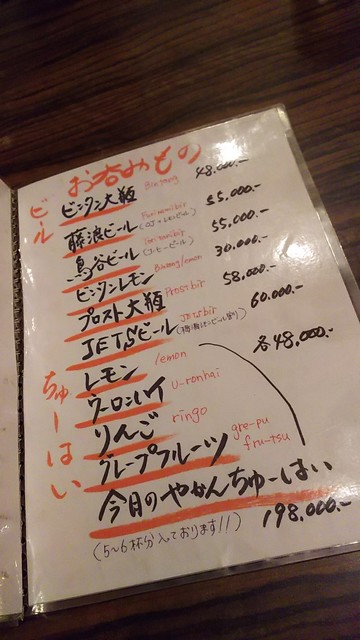 お呑みもの
ビール
ビンタン大瓶 Bintang 48.000.-
藤浪ビール Furinamibir (コーラ+ビール) 55.000.-
鳥谷ビール Toritanibir (コーヒービール) 55.000.-
ビンタンレモン Bintang lemon 30.000.-
プロスト大瓶 Prost bir 58.000.-
JETSビール JETS bir 60.000.-
ちゅーはい
レモン lemon 各48.000.-
ウーロンハイ u-ronhai
りんご ringo
グレープフルーツ gre-pu fru-tsu
今月のやかんちゅーはい
(5~6杯分入っております!!) 198.000.-